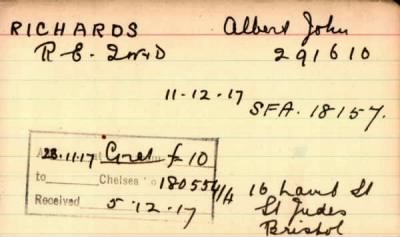 RICHARDS Albert John
R.E. I.W.&D 291610
11-12-17
SFA. 18157.
28.11.17 Grat £10
to Chelsea 180554/4
Received 5.12.17
16 Lamb St
St Judes
Bristol